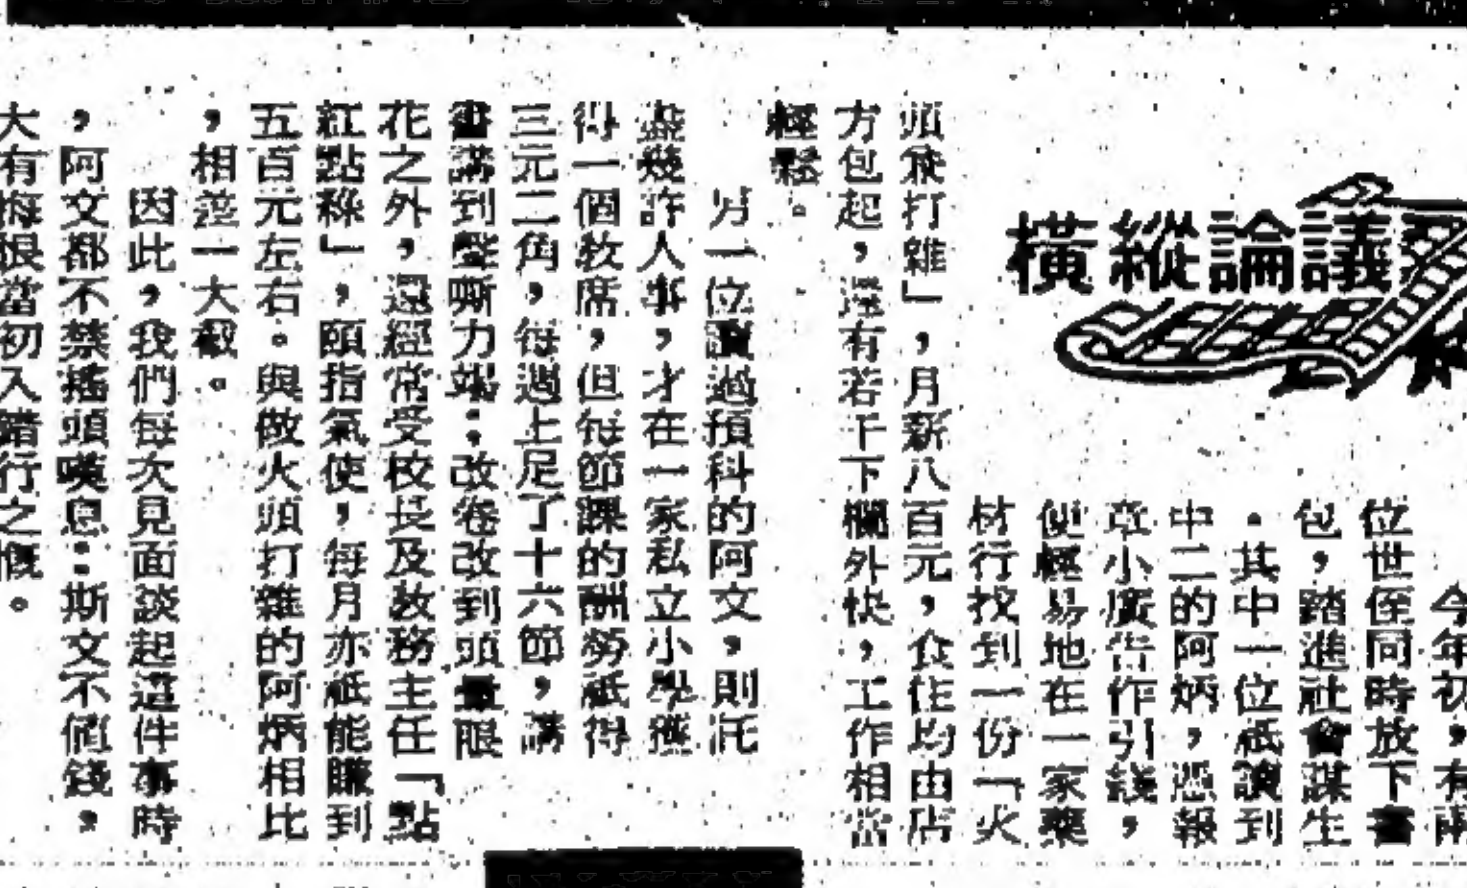 橫縱論議
今年初，有兩
位世侄同時放下書
包，踏進社會謀生
。其中一位祇讀到
中二的阿炳，憑報
章小廣告作引綫，
便輕易地在一家藥
材行找到一份「火
頭兼打雜」，月薪八百元，食住均由店
方包起，還有若干下欄外快，工作相當
輕鬆。
另一位讀過預科的阿文，則託
盡幾許人事，才在一家私立小學獲
得一個教席，但每節課的酬勞祇得
三元二角，每週上足了十六節，講
書講到聲嘶力竭；改卷改到頭暈眼
花之外，還經常受校長及教務主任「點
紅點綠」，頤指氣使，每月亦祇能賺到
五百元左右。與做火頭打雜的阿炳相比
，相差一大截。
因此，我們每次見面談起這件事時
，阿文都不禁搖頭嘆息：斯文不值錢，
大有悔恨當初入錯行之慨。